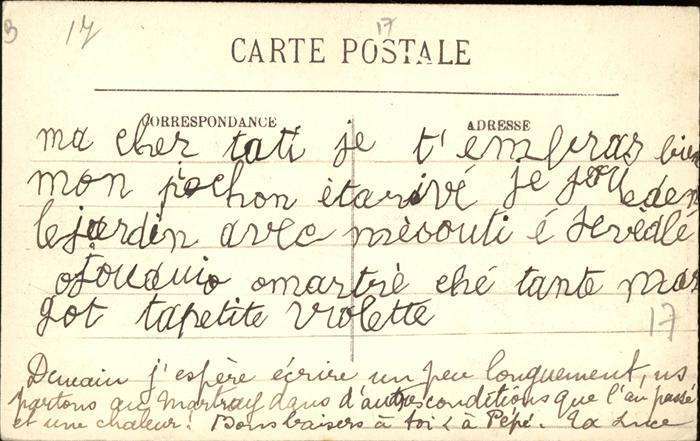 3 17 17
CARTE POSTALE
CORRESPONDANCE ADRESSE
ma cher tati je t'embras bien
mon pochon étarivé je joue den
le jardin avec mé outi é
omartrè ché tante mar
got tapetite violette
17
Demain j'espère écrire un peu longuement, ns
partons au Martray dans d'autres conditions que l'an passé
et une chaleur! Bons baisers à toi & à Pépé. Ta Luce